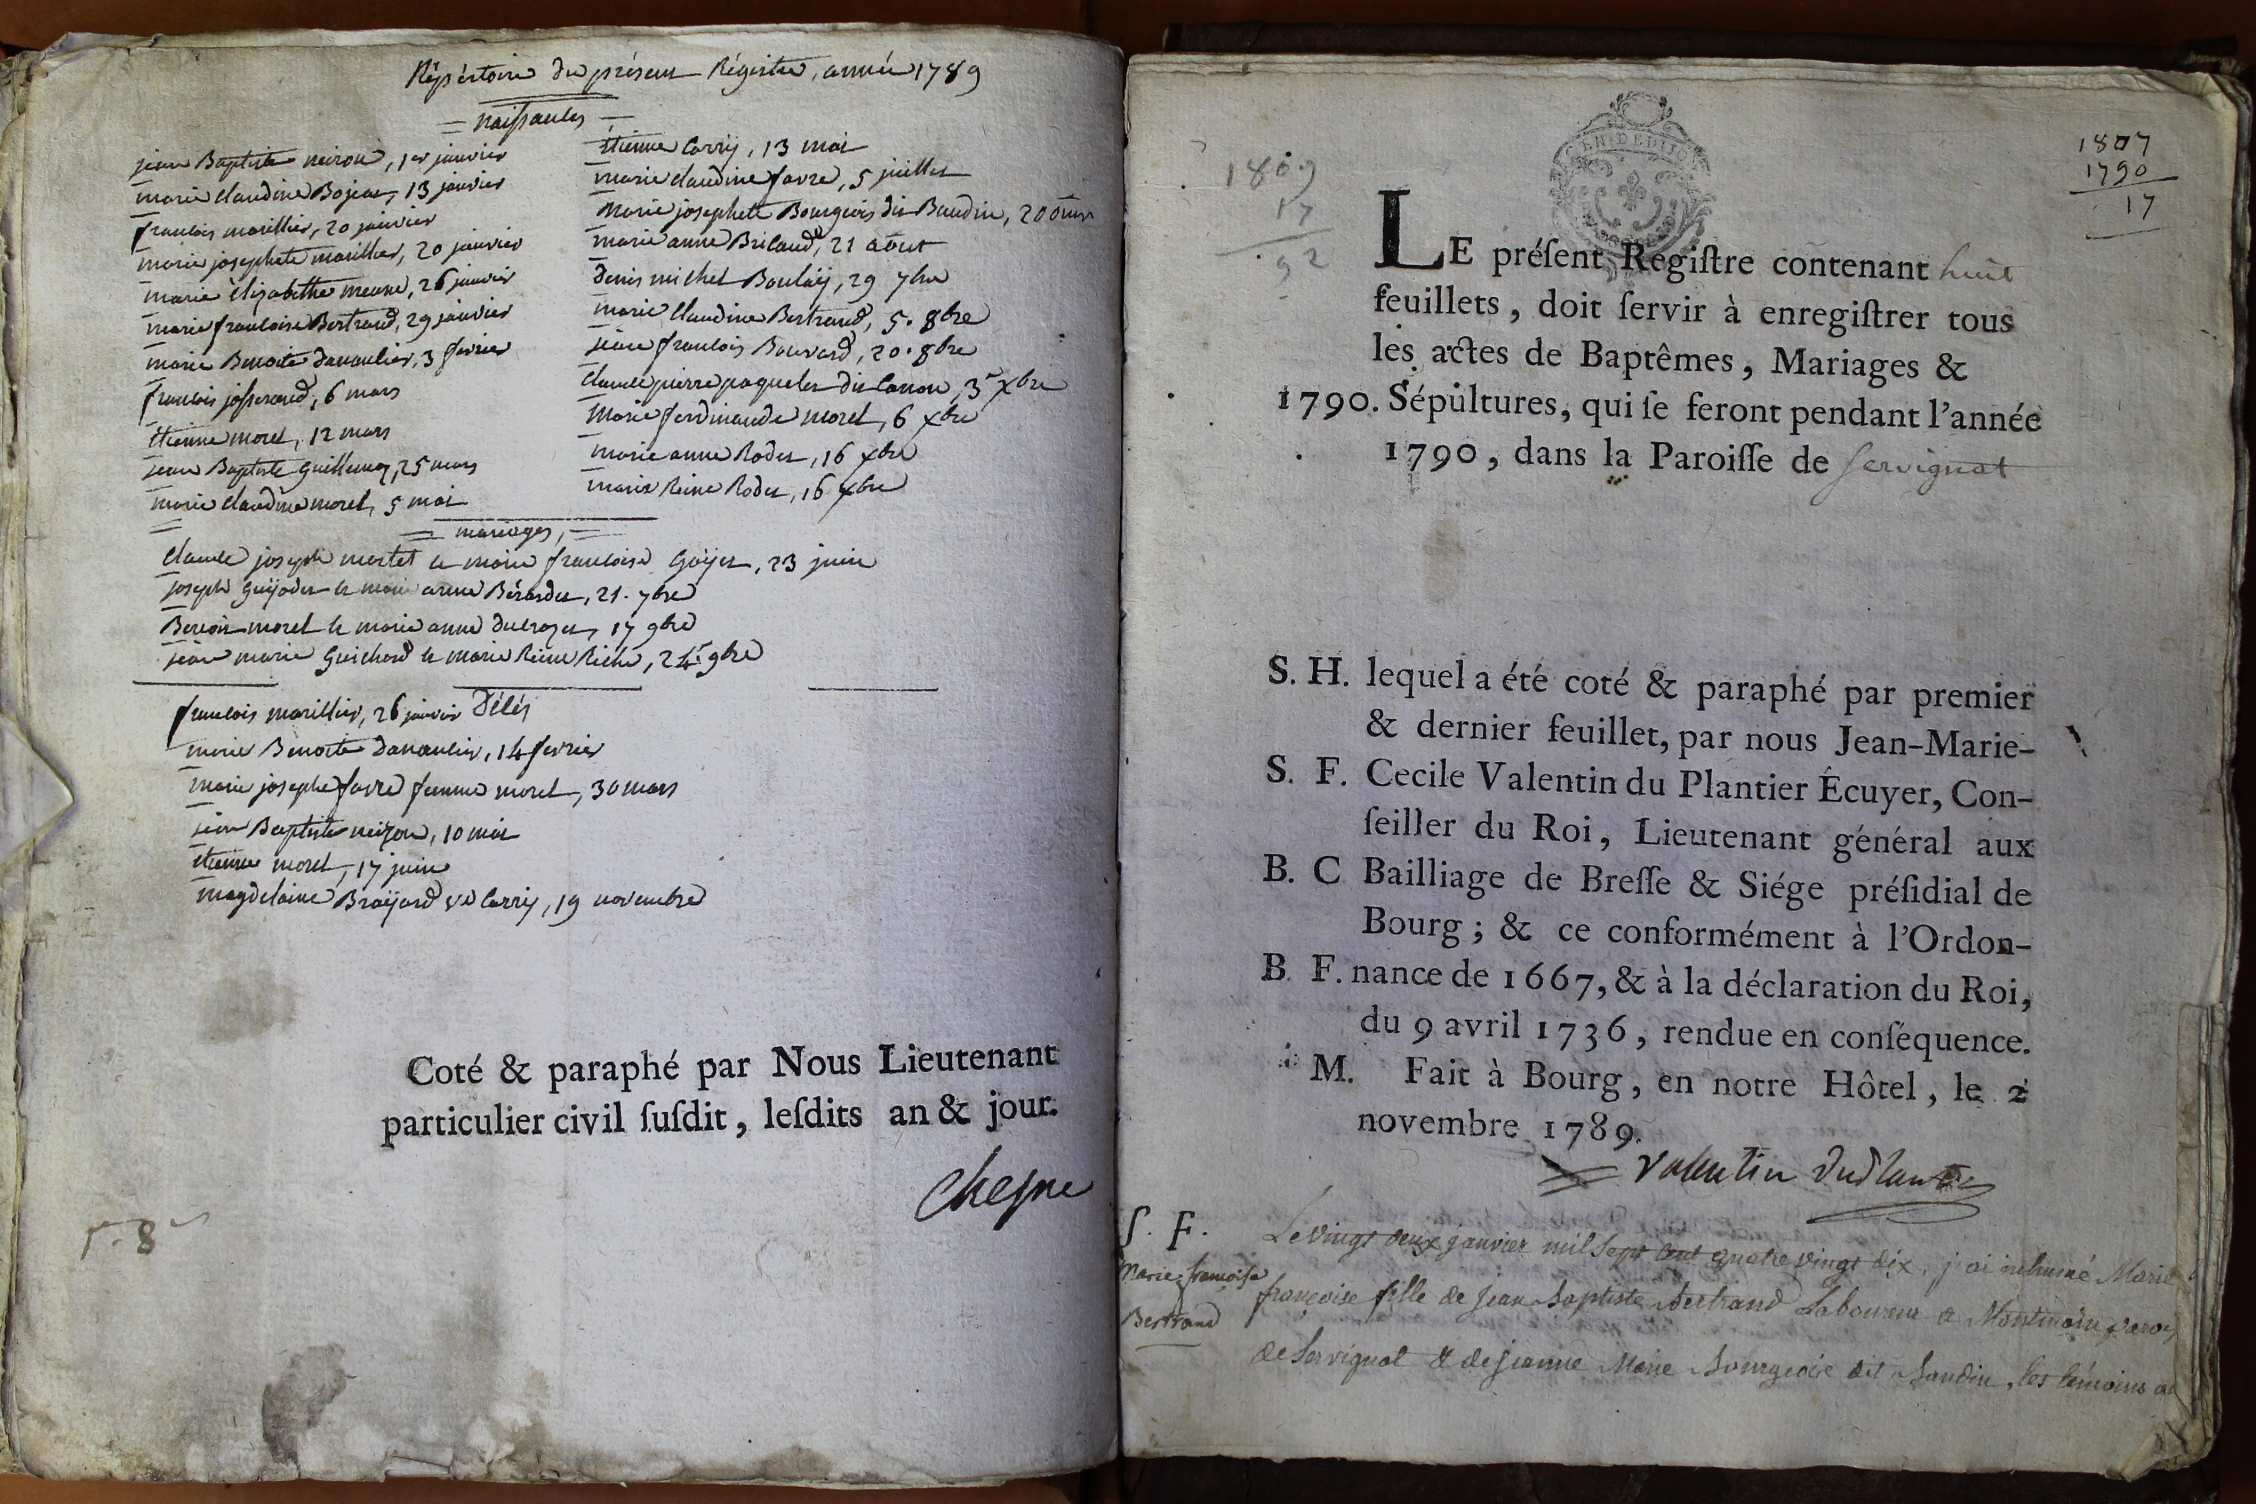 Répértoire du présent Régistre, année 1789
naissances
jean Baptiste neiron, 1er janvier
marie claudine Bojeat, 13 janvier
francois marillier, 20 janvier
marie josephete marillier, 20 janvier
marie élizabethe meune, 26 janvier
marie francoise Bertrand, 29 janvier
marie Benoite danancier, 3 fevrier
francois josserand, 6 mars
étienne morel, 12 mars
jean Baptiste Guillemez, 25 mars
marie claudine morel, 5 mai
étienne Carrij, 13 mai
marie claudine favre, 5 juillet
marie josephete Bourgeois dit Baudin, 20
marie anne Brilaud, 21 aout
denis michel Boulaij, 29 7bre
marie claudine Bertrand, 5. 8bre
jean francois Bouvard, 20. 8bre
claude pierre paquelet dit Canon, 3 xbre
marie ferdinande morel, 6 xbre
marie anne Rodet, 16 xbre
marie Reine Rodet, 16 xbre
mariages,
claude joseph mortet & marie francoise Goÿet, 23 juin
joseph Guÿodet & marie anne Bérardet, 21. 7bre
Benoit morel & marie anne ducrozet, 17 9bre
jean marie Guichard & marie Reine Riche, 24 9bre
Décés
francois marillier, 26 janvier
marie Benoite danancier, 14 fevrier
marie josephe favre femme morel, 30 mars
jean Baptiste neiron, 10 mai
étienne morel, 17 juin
magdelaine Braÿard ve Carrij, 19 novembre
Coté & paraphé par Nous Lieutenant
particulier civil ſuſdit, leſdits an & jour.
Chesne
1809
17
92
1807
1790
17
LE préſent Regiſtre contenant huit
feuillets, doit ſervir à enregiſtrer tous
les actes de Baptêmes, Mariages &
1790. Sépultures, qui ſe feront pendant l'année
1790, dans la Paroiſſe de Servignat
S. H. lequel a été coté & paraphé par premier
& dernier feuillet, par nous Jean-Marie-
S. F. Cecile Valentin du Plantier Écuyer, Con-
ſeiller du Roi, Lieutenant général aux
B. C Bailliage de Breſſe & Siége préſidial de
Bourg; & ce conformément à l'Ordon-
B. F. nance de 1667, & à la déclaration du Roi,
du 9 avril 1736, rendue en conſéquence.
M. Fait à Bourg, en notre Hôtel, le 2
novembre 1789.
Valentin duplantier
S. F.
Marie françoise
Bertrand
Le vingt deux janvier mil sept cent quatre vingt dix, j'ai inhumé Marie
françoise fille de Jean Baptiste Bertrand Laboureur a Montmoin
de Servignat & de jeanne Marie Bourgeois dit Baudin, les témoins